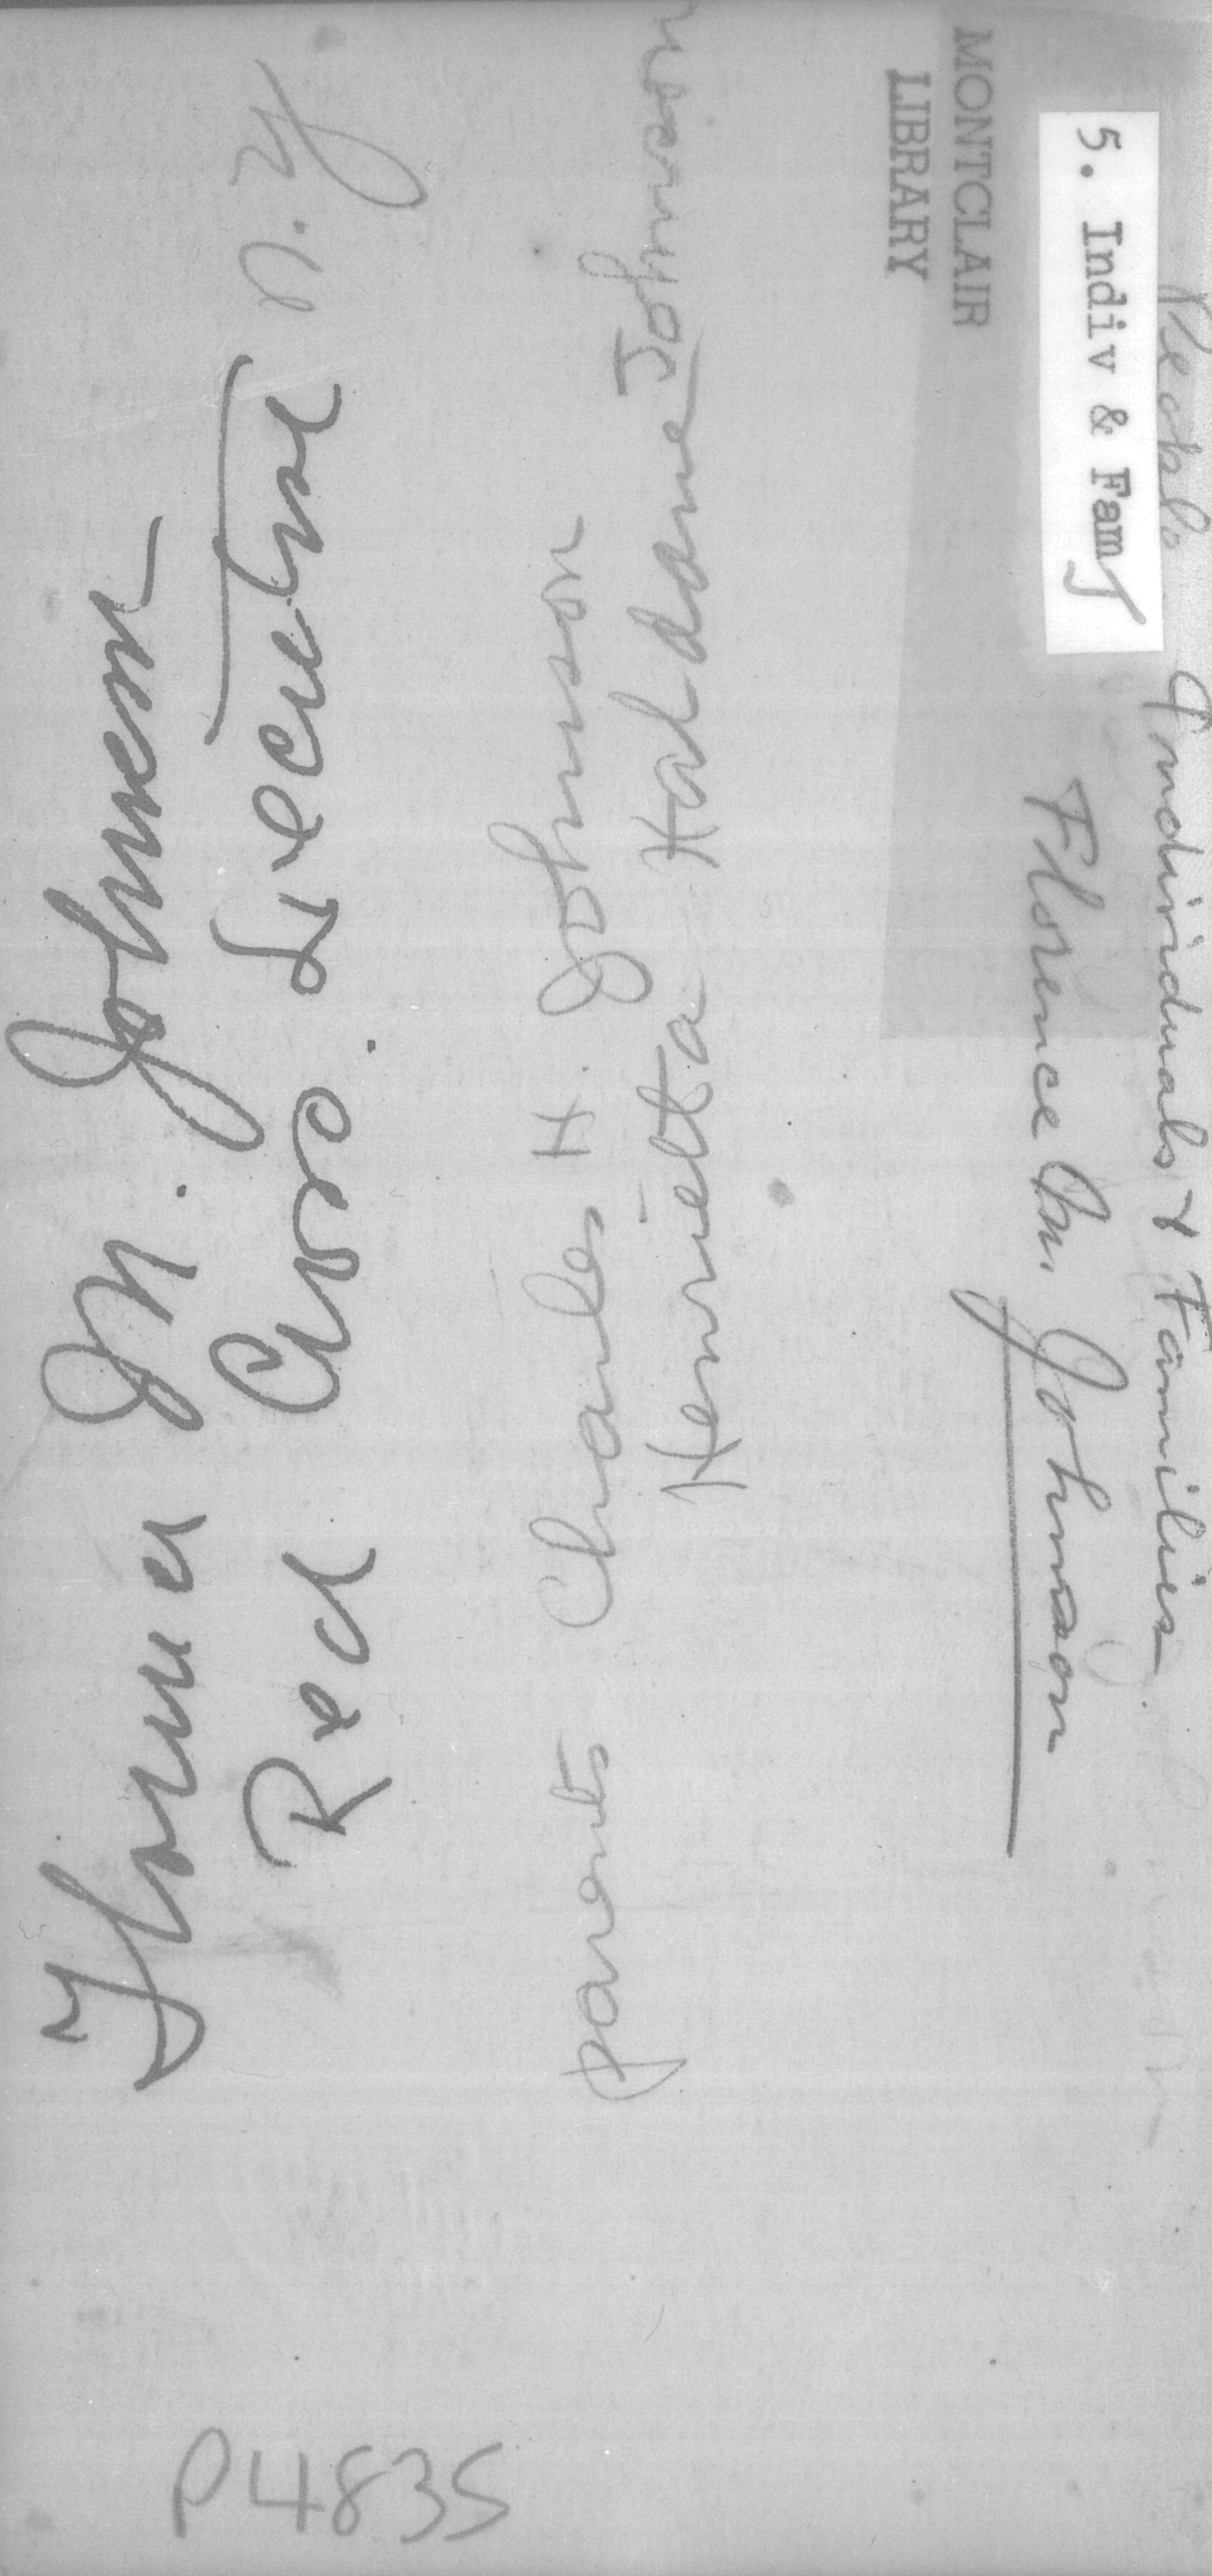 Florence M. Johnson
Red Cross Director N.Y.
parents Charles H. Johnson
Henrietta Haldane Johnson
People Individuals & Families
5. Indiv & Fam J
Florence M. Johnson
MONTCLAIR
LIBRARY
P4835